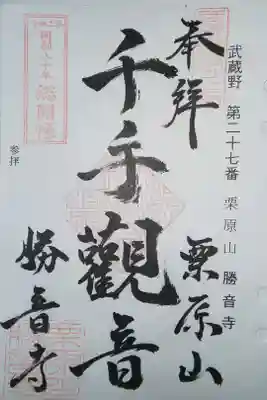 武蔵野 第二十七番 栗原山 勝音寺
奉拝
栗原山
千手觀音
勝音寺
参拝